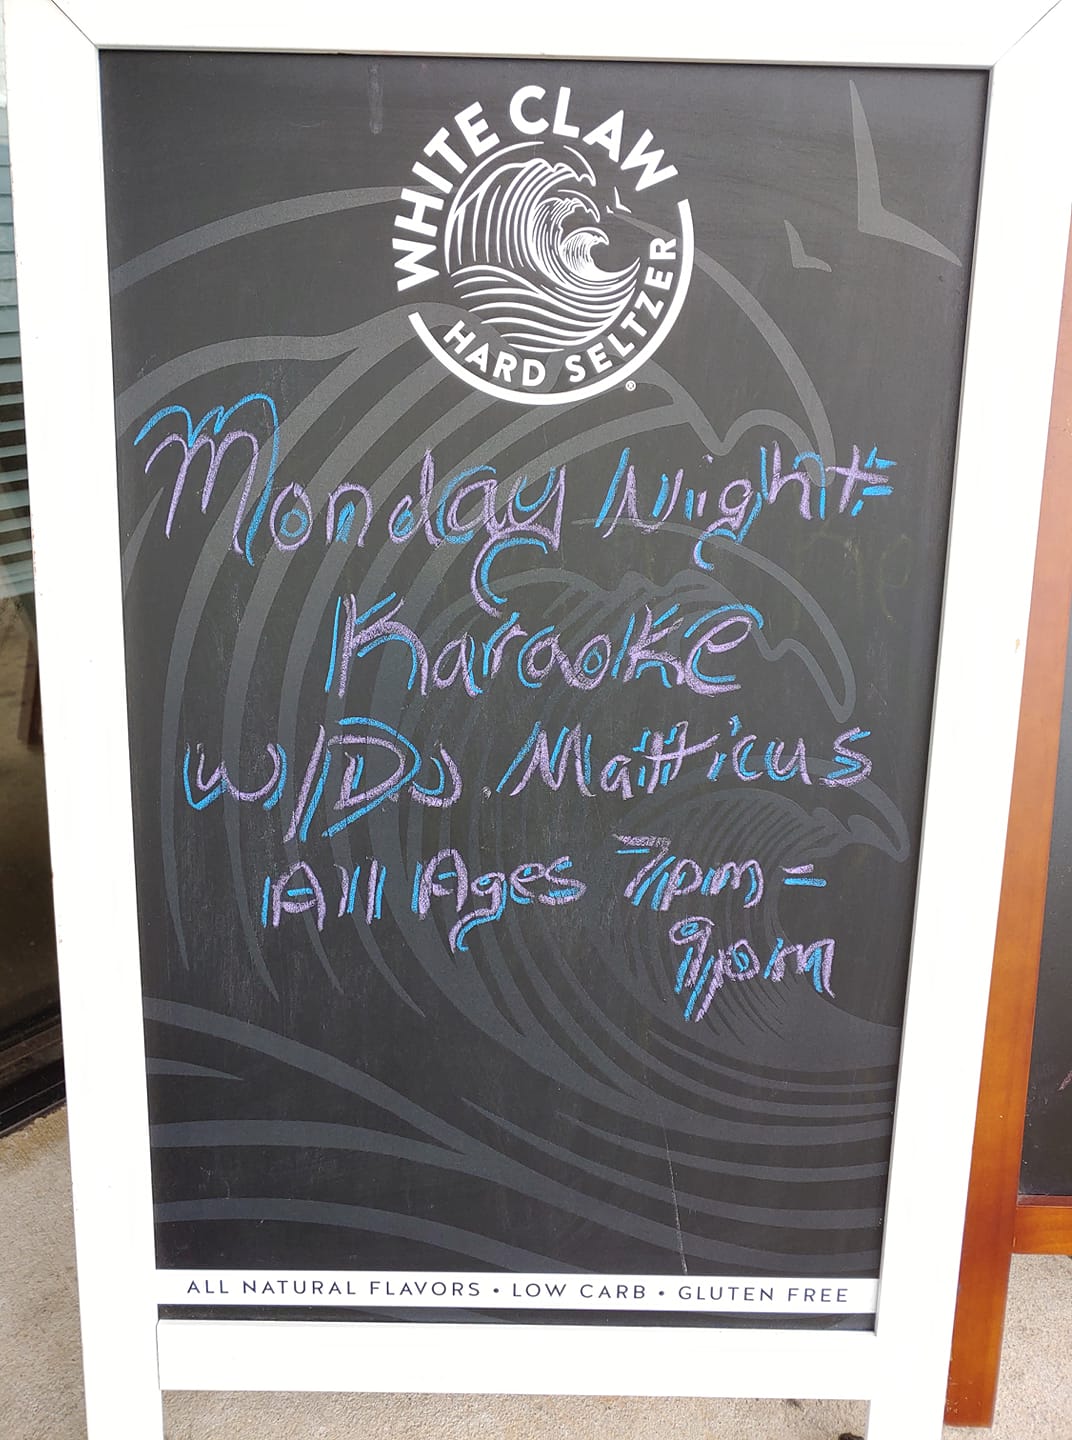 WHITE CLAW
HARD SELTZER
®
Monday Night
Karaoke
w/DJ Matticus
All Ages 7pm-
9pm
ALL NATURAL FLAVORS • LOW CARB • GLUTEN FREE